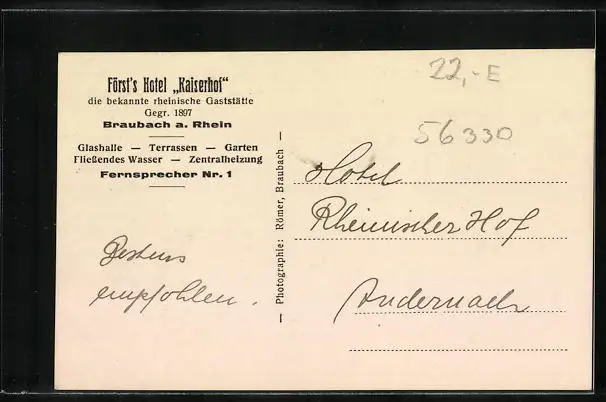 Först's Hotel „Kaiserhof"
die bekannte rheinische Gaststätte
Gegr. 1897
Braubach a. Rhein
Glashalle — Terrassen — Garten
Fließendes Wasser — Zentralheizung
Fernsprecher Nr. 1
Bestens
empfohlen.
Photographie: Römer, Braubach
22,- E
56330
Hotel
Rheinischer Hof
Andernach